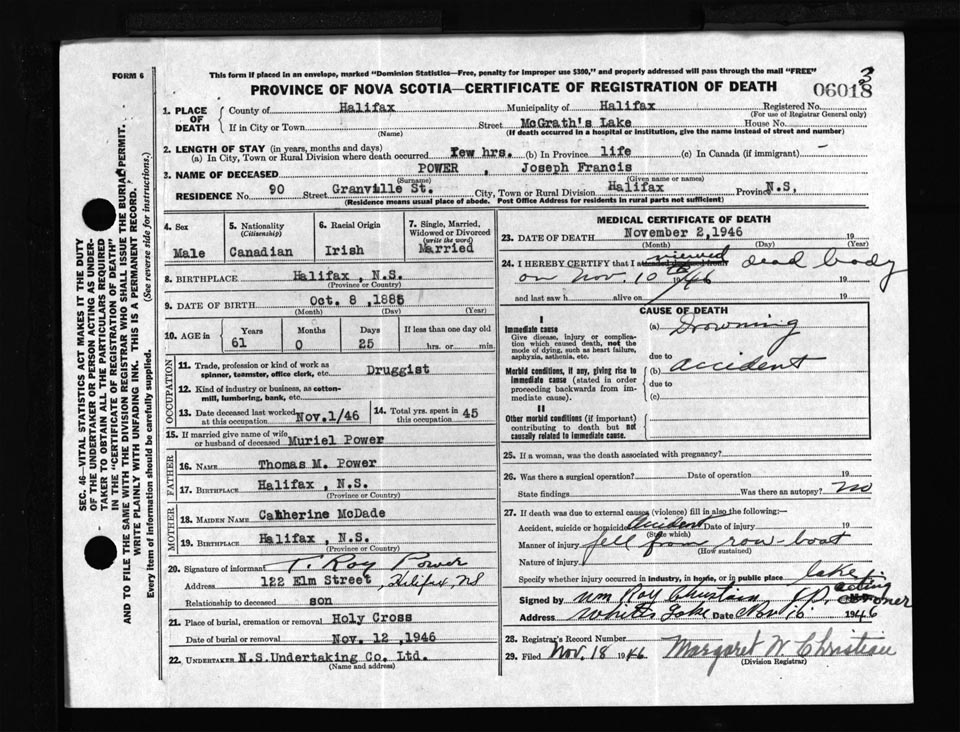 FORM 6
This form if placed in an envelope, marked "Dominion Statistics—Free, penalty for improper use $300," and properly addressed will pass through the mail "FREE"
PROVINCE OF NOVA SCOTIA—CERTIFICATE OF REGISTRATION OF DEATH
3
06018
1. PLACE OF DEATH
County of Halifax Municipality of Halifax Registered No.
(For use of Registrar General only)
If in City or Town Street McGrath's Lake House No.
(Name) (If death occurred in a hospital or institution, give the name instead of street and number)
2. LENGTH OF STAY (in years, months and days)
(a) In City, Town or Rural Division where death occurred few hrs. (b) In Province life (c) In Canada (if immigrant) -
3. NAME OF DECEASED POWER , Joseph Francis
(Surname) (Given name or names)
RESIDENCE No. 90 Street Granville St. City, Town or Rural Division Halifax Province N.S,
(Residence means usual place of abode. Post Office Address for residents in rural parts not sufficient)
4. Sex
Male
5. Nationality
(Citizenship)
Canadian
6. Racial Origin
Irish
7. Single, Married,
Widowed or Divorced
(write the word)
Married
8. BIRTHPLACE Halifax, N.S.
(Province or Country)
9. DATE OF BIRTH Oct. 8, 1885
(Month) (Day) (Year)
10. AGE in
Years Months Days If less than one day old
61 0 25 hrs. or min.
OCCUPATION
11. Trade, profession or kind of work as
spinner, teamster, office clerk, etc. Druggist
12. Kind of industry or business, as cotton-
mill, lumbering, bank, etc.
13. Date deceased last worked
at this occupation Nov.1/46
14. Total yrs. spent in
this occupation 45
15. If married give name of wife
or husband of deceased Muriel Power
FATHER
16. NAME Thomas M. Power
17. BIRTHPLACE Halifax, N.S.
(Province or Country)
MOTHER
18. MAIDEN NAME Catherine McDade
19. BIRTHPLACE Halifax, N.S.
(Province or Country)
20. Signature of informant T. Roy Power
Address 122 Elm Street, Halifax, NS
Relationship to deceased son
21. Place of burial, cremation or removal Holy Cross
Date of burial or removal Nov. 12, 1946
22. UNDERTAKER N.S.Undertaking Co. Ltd.
(Name and address)
MEDICAL CERTIFICATE OF DEATH
23. DATE OF DEATH November 2,1946 19
(Month) (Day) (Year)
24. I HEREBY CERTIFY that I viewed dead body
on Nov. 10th 1946 19
and last saw h alive on 19
CAUSE OF DEATH
I
Immediate cause
Give disease, injury or complica-
tion which caused death, not the
mode of dying, such as heart failure,
asphyxia, asthenia, etc.
(a) Drowning
due to
Morbid conditions, if any, giving rise to
immediate cause (stated in order
proceeding backwards from im-
mediate cause).
(b) accident
due to
(c)
II
Other morbid conditions (if important)
contributing to death but not
causally related to immediate cause.
25. If a woman, was the death associated with pregnancy?
26. Was there a surgical operation? Date of operation 19
State findings Was there an autopsy? no
27. If death was due to external causes (violence) fill in also the following:—
Accident, suicide or homicide Accident Date of injury 19
(State which)
Manner of injury fell from row-boat
(How sustained)
Nature of injury
Specify whether injury occurred in industry, in home, or in public place lake
Signed by Wm Roy Christian acting coroner
Address Whites Lake Date Nov 16 1946
28. Registrar's Record Number
29. Filed Nov. 18 1946 Margaret W. Christian
(Division Registrar)
SEC. 46—VITAL STATISTICS ACT MAKES IT THE DUTY
OF THE UNDERTAKER OR PERSON ACTING AS UNDER-
TAKER TO OBTAIN ALL THE PARTICULARS REQUIRED
IN THE "CERTIFICATE OF REGISTRATION OF DEATH"
AND TO FILE THE SAME WITH THE DIVISION REGISTRAR WHO SHALL ISSUE THE BURIAL PERMIT.
WRITE PLAINLY WITH UNFADING INK. THIS IS A PERMANENT RECORD.
Every item of information should be carefully supplied. (See reverse side for instructions.)